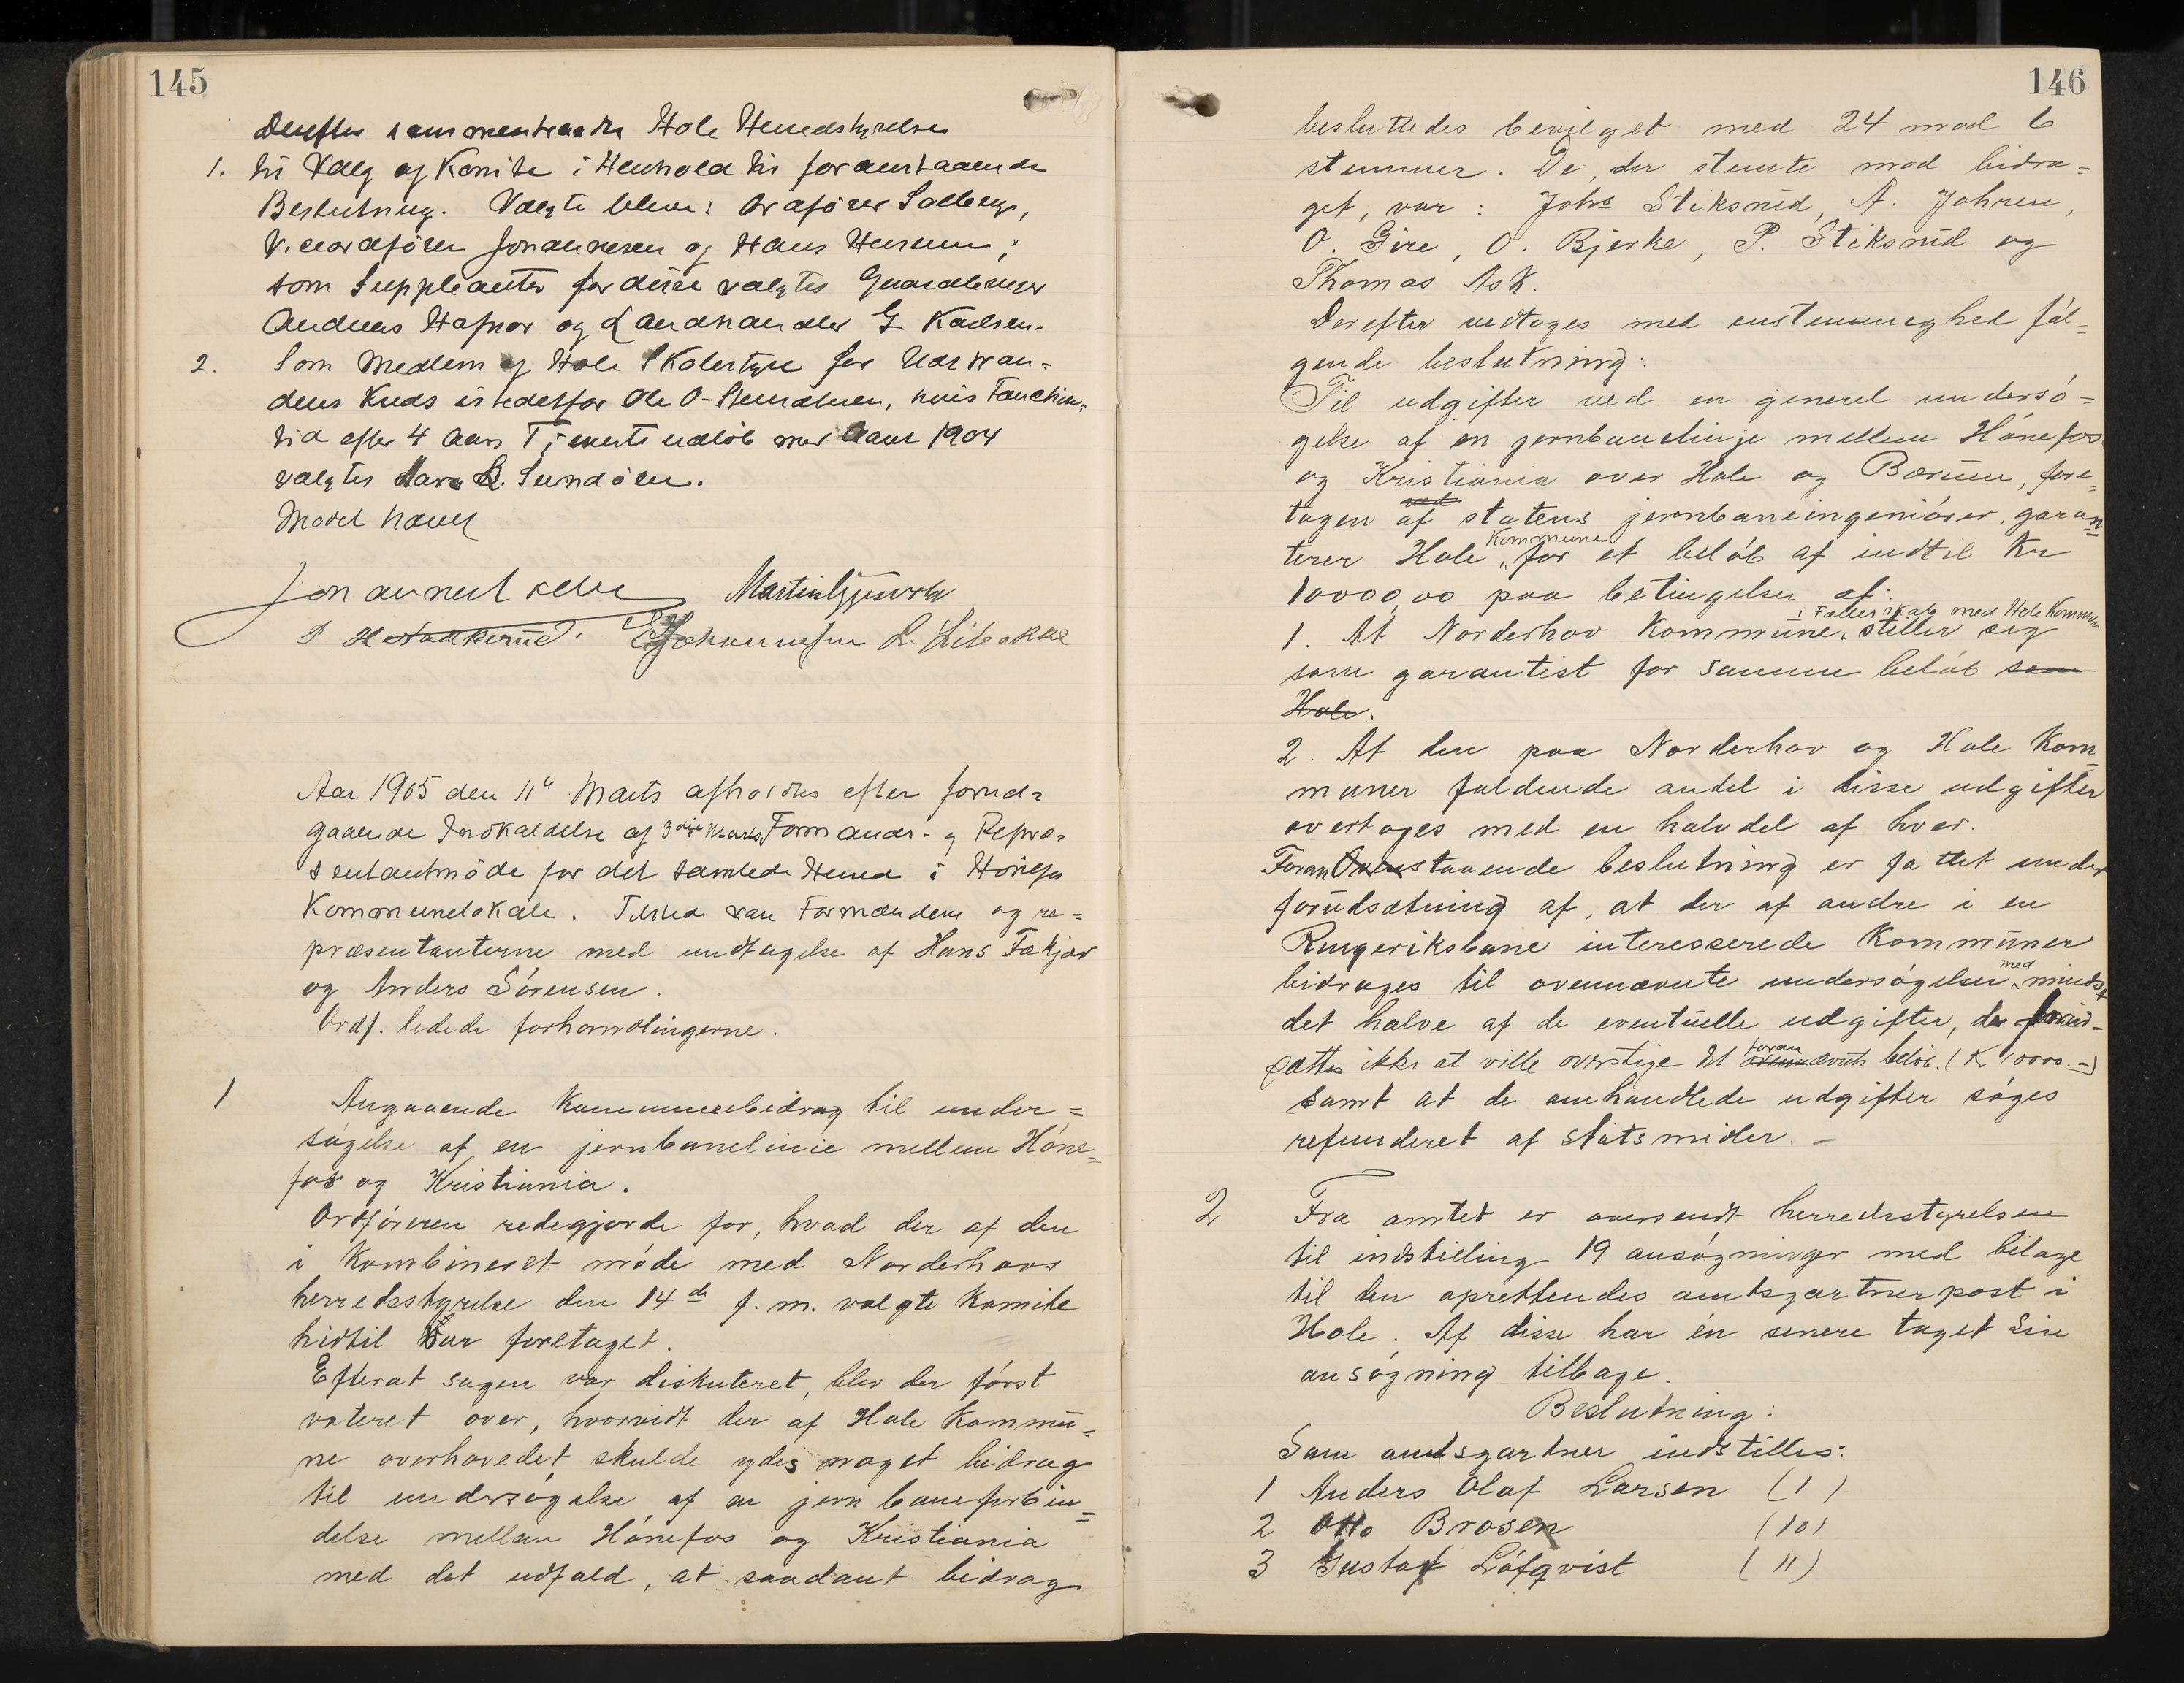 145
Derefter sammentraadte Hole Herredstyrelse
1. til Valg af Komite i Henhold til foranstaaende
Beslutning. Valgte bleve: Ordfører Solberg,
Viceordfører Johannesen og Hans Hurum;
som Suppleanter for disse valgtes Gaardbruger
Andreas Hafnor og Landhandler G. Karlsen.
2. Som Medlem af Hole Skolestyre for
dens Kreds istedetfor Ole O. hvis Function-
tid efter 4 Aars Tjeneste udløb med Aaret 1904
valgtes Sundøen.
Mødet hævet
P H Stadkerud. Johannesen L. Libakke
Aar 1905 den 11te Marts afholdtes efter forud-
gaaende Indkaldelse af 3die Marts Formands- og Repræ-
sentantmøde for det samlede Herred i Hønefos
Kommunelokale. Tilstede var Formændene og re=
præsentanterne med undtagelse af Hans Fækjær
og Anders Sørensen.
Ordf. ledede forhandlingerne.
1 Angaaende Kommunebidrag til under=
søgelse af en jernbanelinie mellem Høne=
fos og Kristiania.
Ordføreren redegjorde for, hvad der af den
i Kombineret møde med Norderhovs
herredsstyrelse den 14de f. m. valgte Komite
hidtil var foretaget.
Efterat sagen var diskuteret, blev der først
voteret over, hvorvidt der af Hole Kommu=
ne overhovedet skulde ydes noget bidrag
til undersøgelse af en jernbaneforbin=
delse mellem Hønefos og Kristiania
med det udfald, at saadant bidrag
146
besluttedes bevilget med 24 mod 6
stemmer. De, der stemte mod bidra=
get, var: Johs Stiksrud, A. Johren,
O. Gire, O. Bjerke, P. Stiksrud og
Thomas Ask.
Derefter vedtoges med enstemmighed føl=
gende beslutning:
Til udgifter ved en generel undersø=
gelse af en jernbanelinje mellem Hønefos
og Kristiania over Hole og Bærum, fore=
tagen af statens jernbaneingeniører, garan=
terer Hole Kommune for et beløb af indtil Kr
10000,00 paa betingelse af:
1. At Norderhov Kommune i Fællesskab med Hole Kommune stiller sig
som garantist for samme beløb som
Hole.
2. At den paa Norderhov og Hole Kom
muner faldende andel i disse udgifter
overtages med en halvdel af hver.
Foranstaaende beslutning er fattet under
forudsætning af, at der af andre i en
Ringeriksbane interesserede Kommuner
bidrages til ovennævnte undersøgelser med mindst
det halve af de eventuelle udgifter, der forud-
sættes ikke at ville overstige det forannævnte beløb. (K 10000.-)
Samt at de omhandlede udgifter søges
refunderet af statsmidler. -
2 Fra amtet er oversendt herredsstyrelsen
til indstilling 19 ansøgninger med bilage
til den oprettendes amtsgartnerpost i
Hole. Af disse har én senere taget sin
ansøgning tilbage.
Beslutning:
Som amtsgartner indstilles:
1 Anders Olaf Larsen (1)
2 Otto Brosen (10)
3 Gustaf Löfqvist (11)